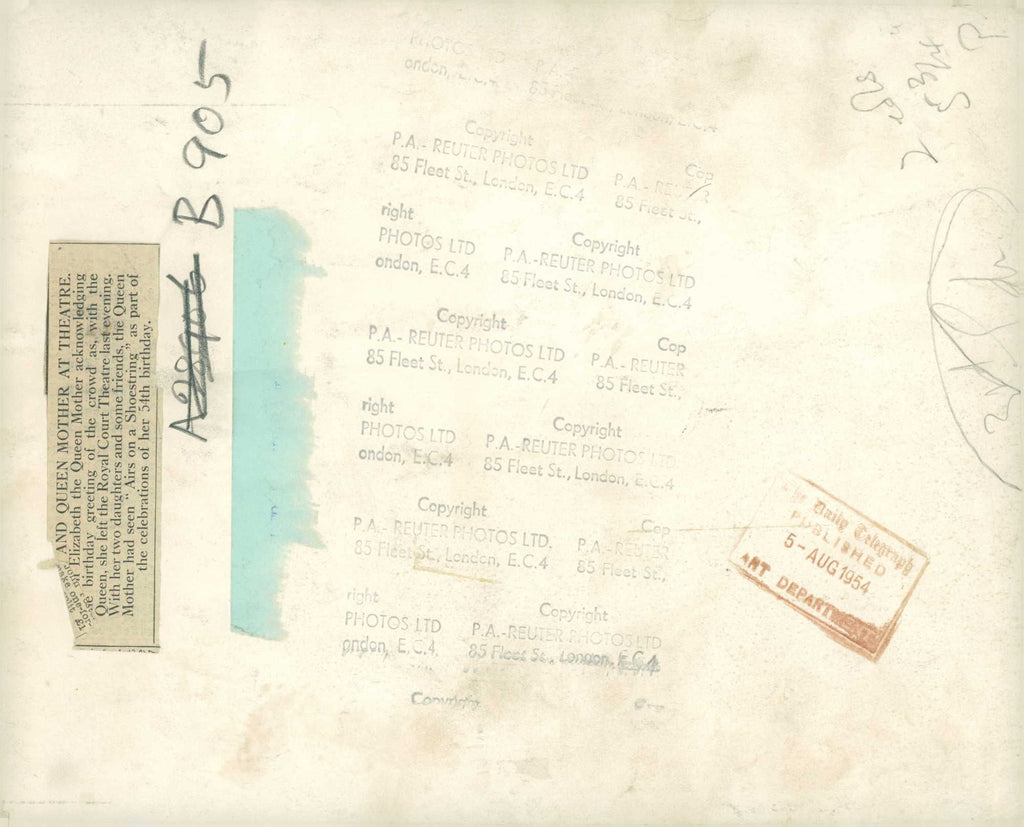 B 905
AND QUEEN MOTHER AT THEATRE.
Elizabeth the Queen Mother acknowledging
birthday greeting of the crowd as, with the
Queen, she left the Royal Court Theatre last evening.
With her two daughters and some friends, the Queen
Mother had seen " Airs on a Shoestring " as part of
the celebrations of her 54th birthday.
PHOTOS
ondon, E.C.4
Copyright
P.A.- REUTER PHOTOS LTD
85 Fleet St., London, E.C.4
Cop
P.A.- REUTER
85 Fleet St.,
right
PHOTOS LTD
ondon, E.C.4
Copyright
P.A.-REUTER PHOTOS LTD
85 Fleet St., London, E.C.4
Copyright
P.A.- REUTER PHOTOS LTD
85 Fleet St., London, E.C.4
Cop
P.A.- REUTER
85 Fleet St.,
right
PHOTOS LTD
ondon, E.C.4
Copyright
P.A.-REUTER PHOTOS LTD
85 Fleet St., London, E.C.4
Copyright
P.A.- REUTER PHOTOS LTD.
85 Fleet St., London, E.C.4
Cop
P.A.- REUTER
85 Fleet St.,
right
PHOTOS LTD
ondon, E.C.4
Copyright
P.A.-REUTER PHOTOS LTD
85 Fleet St., London, E.C.4
Copyright
The Daily Telegraph
PUBLISHED
5-AUG 1954
ART DEPARTMENT